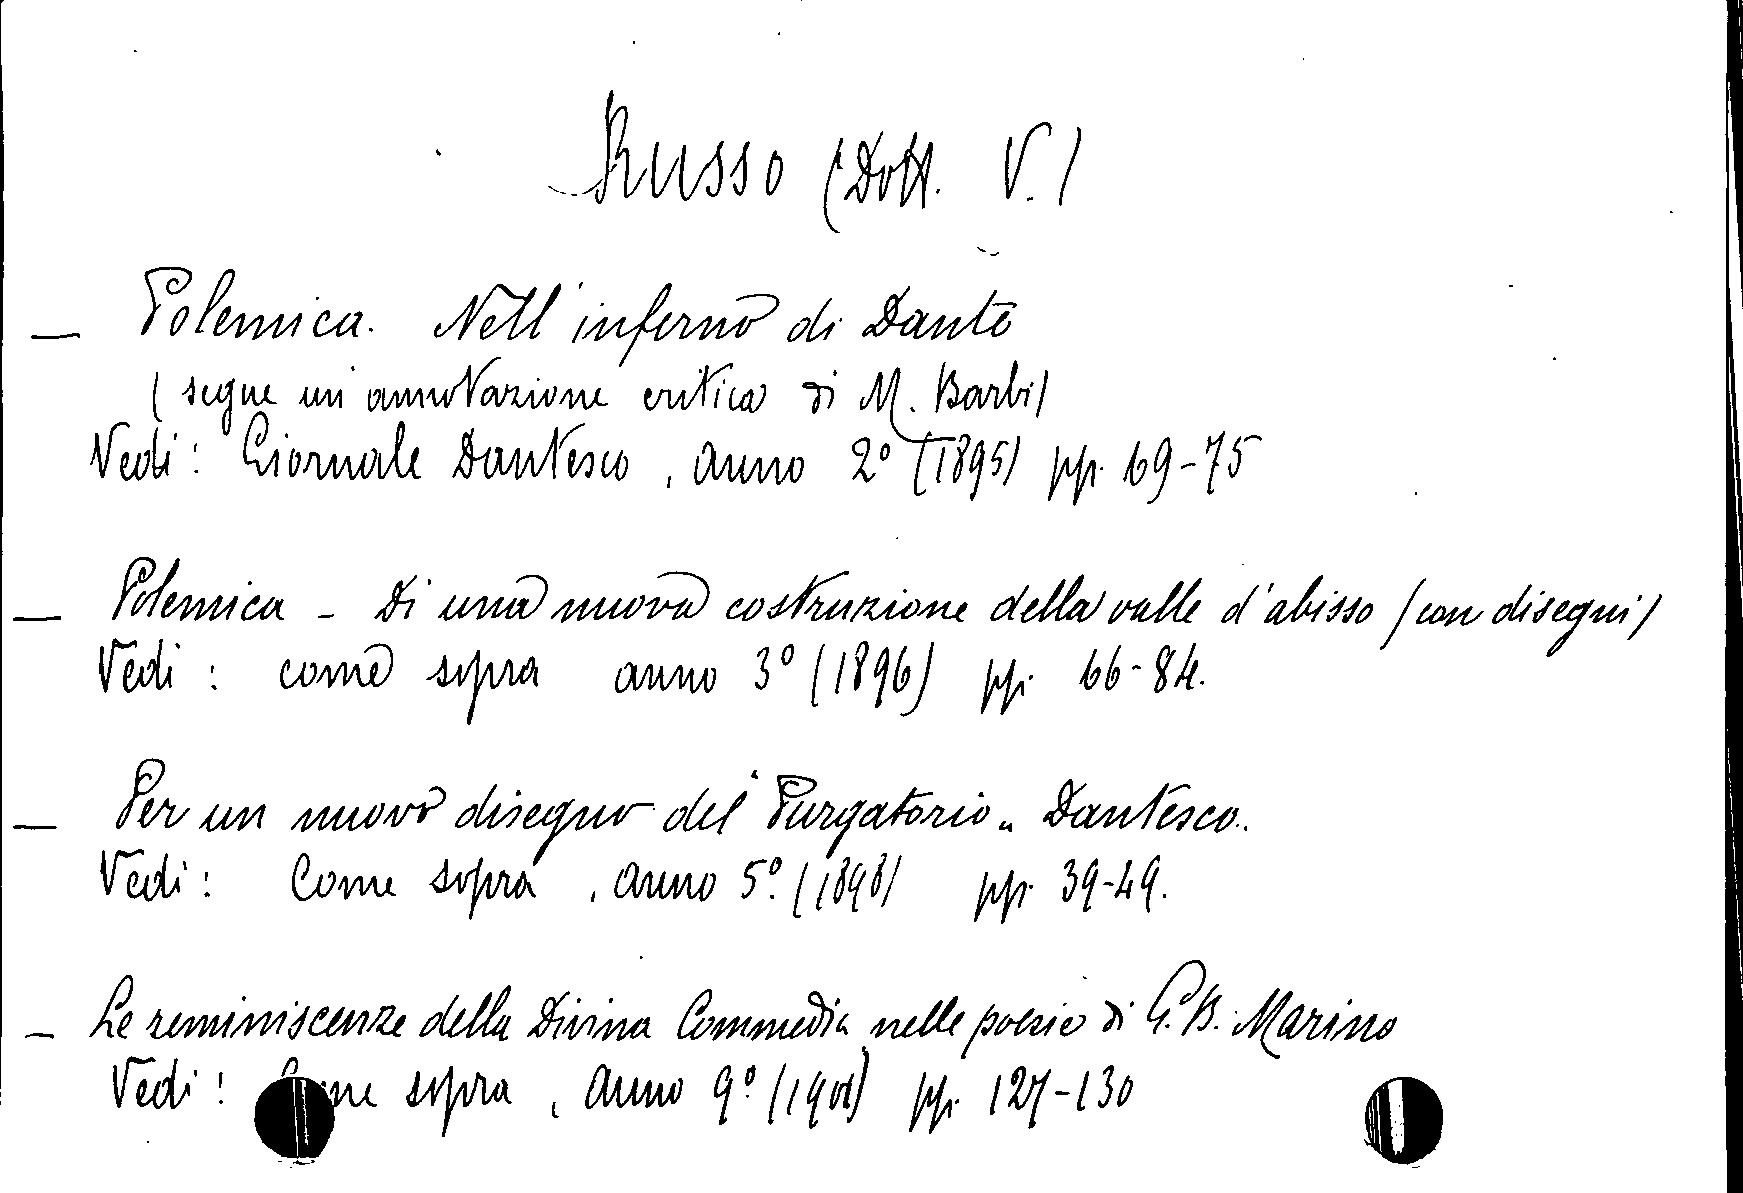 Russo (Dott. V.)
— Polemica. Nell'inferno di Dante
(segue un'annotazione critica di M. Barbi)
Vedi: Giornale Dantesco, anno 2° (1895) pp. 69-75
— Polemica - Di una nuova costruzione della valle d'abisso (con disegni)
Vedi: come sopra anno 3° (1896) pp. 66-84.
— Per un nuovo disegno del "Purgatorio" Dantesco.
Vedi: Come sopra, anno 5° (1898) pp. 39-49.
— Le reminiscenze della Divina Commedia nelle poesie di G. B. Marino
Vedi: Come sopra, anno 9° (1901) pp. 127-130